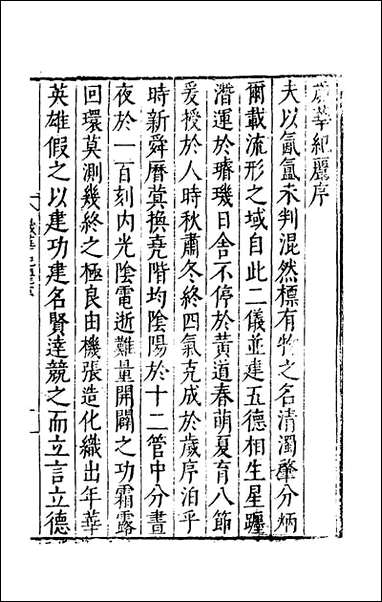 歲華紀麗序
夫以氤氳未判混然標有物之名清濁肇分炳
爾載流形之域自此二儀並建五德相生星躔
潛運於璿璣日舎不停於黄道春萌夏育八節
爰授於人時秋肅冬終四氣克成於歲序洎乎
時新舜曆蓂換堯階均陰陽於十二管中分晝
夜於一百刻内光陰電逝難量開闢之功霜露
回環莫測幾終之極良由機張造化織出年華
英雄假之以建功建名賢達競之而立言立德